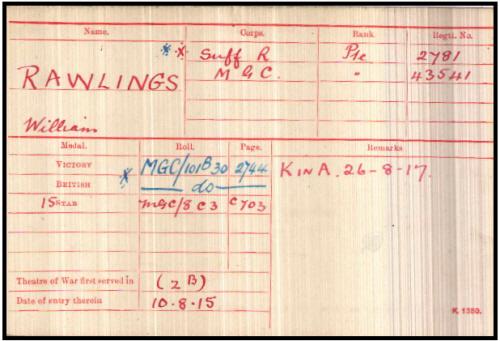 Name. Corps. Rank. Regtl. No.
* * Suff R Pte 2781
RAWLINGS M G C. " 43541
William
Medal. Roll. Page. Remarks
VICTORY MGC/101B30 2744 K in A. 26-8-17.
* BRITISH do
15 STAR MGC/8 C3 C703
Theatre of War first served in (2B)
Date of entry therein 10.8.15
K 1380.